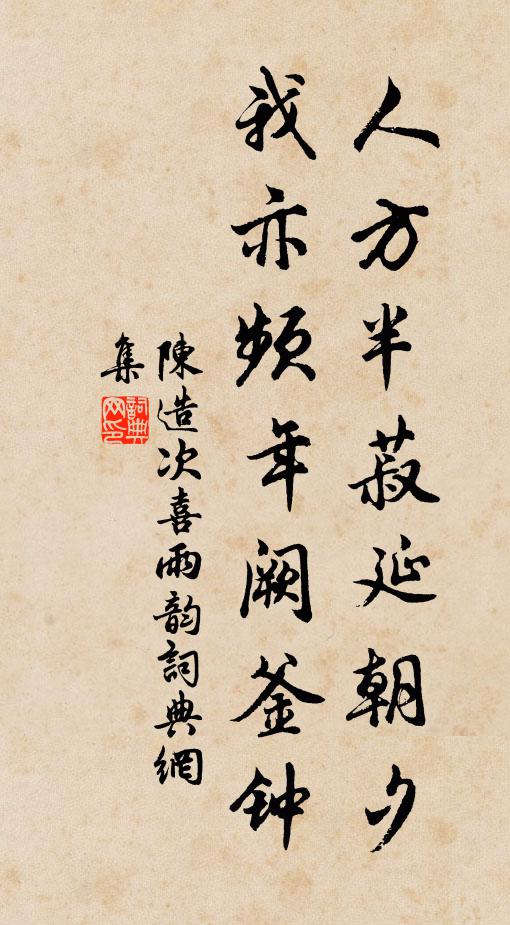 人方半菽延朝夕
我亦频年阙釜钟
陳造次喜雨韵詞典網
集
詞典網印